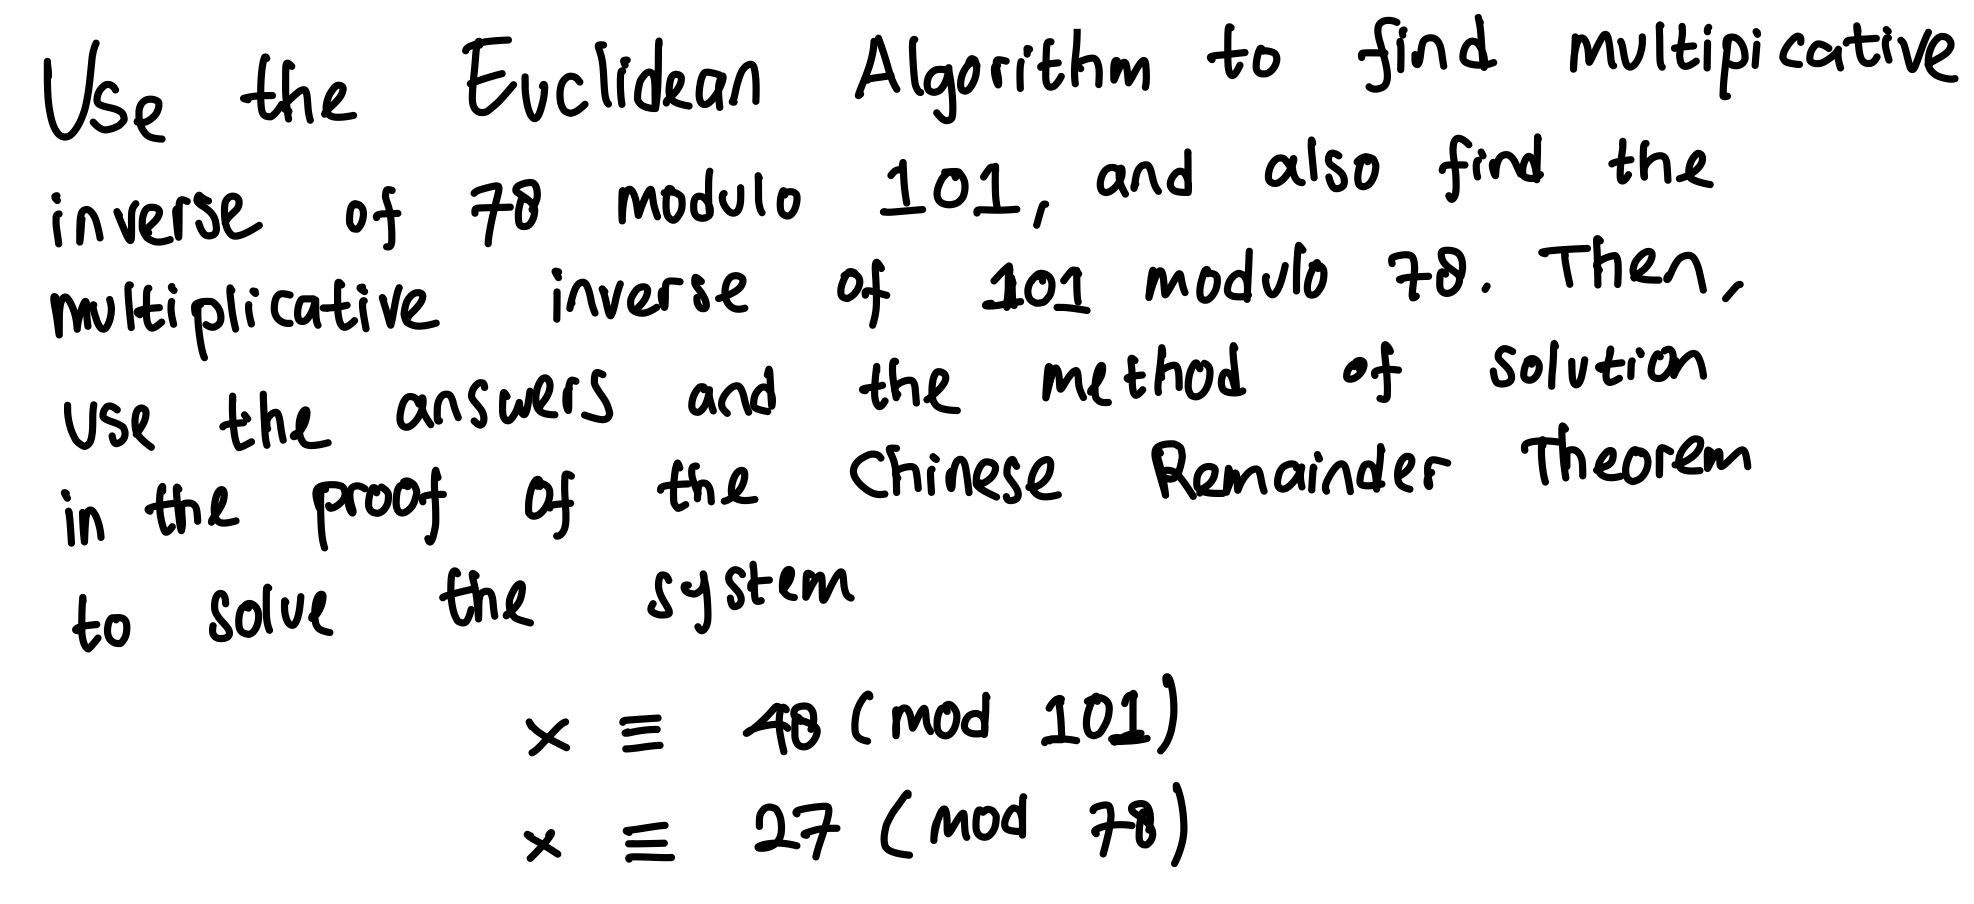 Use the Euclidean Algorithm to find multipicative
inverse of 78 modulo 101, and also find the
multiplicative inverse of 101 modulo 78. Then,
use the answers and the method of solution
in the proof of the Chinese Remainder Theorem
to solve the system
x ≡ 48 (mod 101)
x ≡ 27 (mod 78)